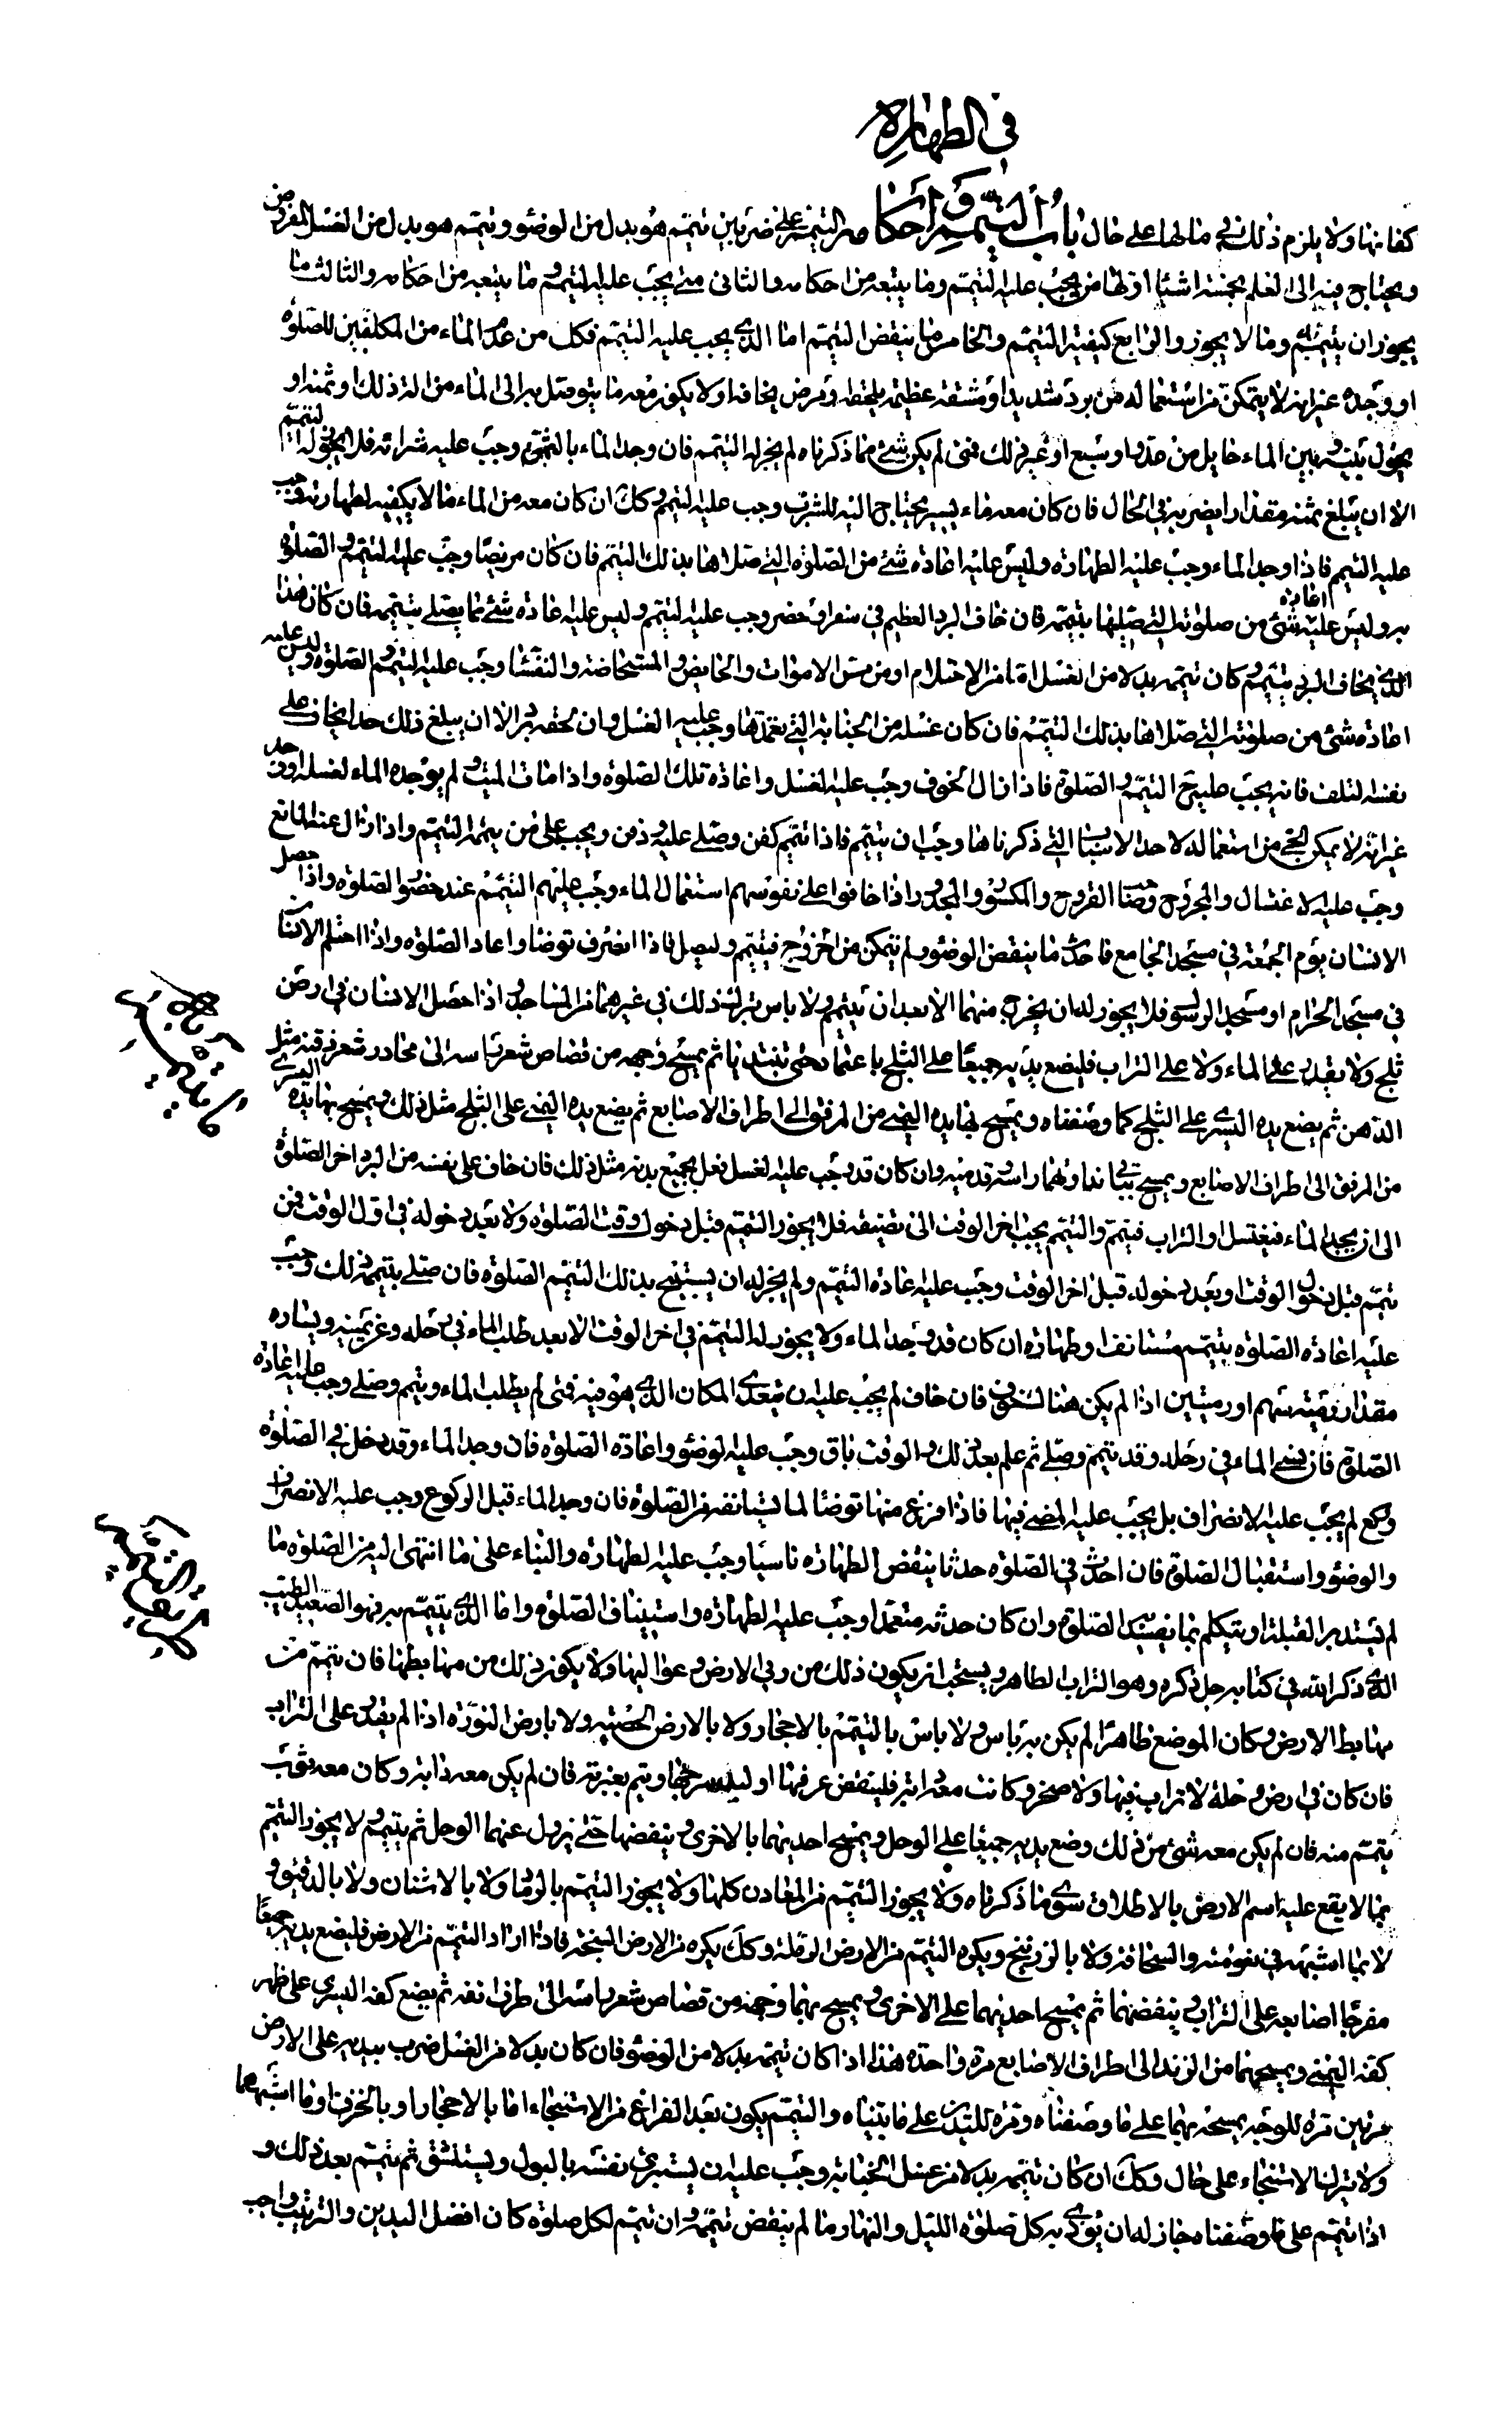 في الطهارة
كفانها ولا يلزم ذلك في مالها على حال باب التيمم واحكامه التيمم على ضربين تيمم هو بدل من الوضوء وتيمم هو بدل من الغسل المفروض
ويحتاج فيه الى العلم بخمسة اشياء اولها من يجب عليه التيمم وما يتبعه من احكامه والثاني متى يجب عليه التيمم وما يتبعه من احكامه والثالث ما
يجوز ان يتيمم به وما لا يجوز والرابع كيفية التيمم والخامس ما ينقض التيمم اما الذي يجب عليه التيمم فكل من عدم الماء من المكلفين للصلوة
او وجده غير انه لا يتمكن من استعماله من برد شديد او مشقة عظيمة يلحقه او مرض يخافه او لا يكون معه ما يتوصل به الى الماء من الة ذلك او ثمنه او
يحول بينه وبين الماء حايل من عدو او سبع او غير ذلك فمتى لم يكن شئ مما ذكرناه لم يجز له التيمم فان وجد الماء بالثمن وجب عليه شرائه فلا يجوز له التيمم
الا ان يبلغ ثمنه مقدارا يضر به في الحال فان كان معه ماء يسير يحتاج اليه للشرب وجب عليه التيمم وكك ان كان معه من الماء ما لا يكفيه لطهارته وجب
عليه التيمم فاذا وجد الماء وجب عليه الطهارة وليس عليه اعادة شئ من الصلوة التي صلاها بذلك التيمم فان كان مريضا وجب عليه التيمم والصلوة
به وليس عليه اعادة شئ من صلوته التي صلاها بتيممه فان خاف البرد العظيم في سفر او حضر وجب عليه التيمم وليس عليه اعادة شئ مما يصلي بتيممه فان كان هذا
الذي يخاف البرد متيمم وكان تيممه بدلا من الغسل اما من الاحتلام او من مس الاموات والحايض والمستحاضة والنفساء وجب عليه التيمم والصلوة وليس عليه
اعادة شئ من صلوته التي صلاها بذلك التيمم فان كان غسله من الجنابة التي تعمدها وجب عليه الغسل وان لحقه برد الا ان يبلغ ذلك حدا يخاف على
نفسه التلف فانه يجب عليه ح التيمم والصلوة فاذا زال الخوف وجب عليه الغسل واعادة تلك الصلوة واذا مات الميت ولم يوجد الماء لغسله او وجد
غير انه لا يمكن الحي من استعماله لاحد الاسباب التي ذكرناها وجب ان يتيمم فاذا تيمم كفن وصلى عليه ودفن ويجب على من يتممه التيمم واذا زال عنه المانع
وجب عليه الاغتسال والمجروح وصاحب القروح والمكسور والمجدور اذا خافوا على نفوسهم استعمال الماء وجب عليهم التيمم عند حضور الصلوة واذا حصل
الانسان يوم الجمعة في مسجد الجامع فاحدث ما ينقض الوضوء ولم يتمكن من الخروج فيتيمم وليصل فاذا انصرف توضأ واعاد الصلوة واذا احتلم الانسان
في مسجد الحرام او مسجد الرسول فلا يجوز له ان يخرج منهما الا بعد ان يتيمم ولا باس بترك ذلك في غيرهما من المساجد واذا حصل الانسان في ارض
ثلج ولا يقدر على الماء ولا على التراب فليضع يديه جميعا على الثلج باعتماد حتى تنتديا ثم يمسح وجهه من قصاص شعر راسه الى محادر شعر ذقنه مثل
الدهن ثم يضع يده اليسرى على الثلج كما وصفناه ويمسح بها يده اليمنى من المرفق الى اطراف الاصابع ثم يضع يده اليمنى على الثلج مثل ذلك ويمسح بها يده اليسرى
من المرفق الى اطراف الاصابع ويمسح بباقي نداوتهما راسه وقدميه وان كان قد وجب عليه الغسل فعل بجميع بدنه مثل ذلك فان خاف على نفسه من البرد اخر الصلوة
الى ان يجد الماء فيغتسل او التراب فيتيمم والتيمم يجب اخر الوقت الى تضيقه فلا يجوز التيمم قبل دخول وقت الصلوة ولا بعد دخوله في اول الوقت فمن
تيمم قبل دخول الوقت او بعد دخوله قبل اخر الوقت وجب عليه اعادة التيمم ولم يجز له ان يستبيح بذلك التيمم الصلوة فان صلى بتيممه ذلك وجب
عليه اعادة الصلوة بتيمم مستانف او طهارة ان كان قد وجد الماء ولا يجوز له التيمم في اخر الوقت الا بعد طلب الماء في رحله وعن يمينه ويساره
مقدار رمية سهم او رميتين اذا لم يكن هناك خوف فان خاف لم يجب عليه ان يتعدى المكان الذي هو فيه فمتى لم يطلب الماء وتيمم وصلى وجب عليه اعادة
الصلوة فان نسي الماء في رحله وقد تيمم وصلى ثم علم بعد ذلك والوقت باق وجب عليه الوضوء واعادة الصلوة فان وجد الماء وقد دخل في الصلوة
وركع لم يجب عليه الانصراف بل يجب عليه المضي فيها فاذا فرغ منها توضأ لما يستانفه من الصلوة فان وجد الماء قبل الركوع وجب عليه الانصراف
والوضوء واستقبال الصلوة فان احدث في الصلوة حدثا ينقض الطهارة ناسيا وجب عليه الطهارة والبناء على ما انتهى اليه من الصلوة ما
لم يستدبر القبلة او يتكلم بما يفسد الصلوة وان كان حدثه متعمدا وجب عليه الطهارة واستيناف الصلوة واما الذي يتيمم به فهو الصعيد الطيب
الذي ذكر الله في كتابه جل ذكره وهو التراب الطاهر ويستحب ان يكون ذلك من ربى الارض وعواليها ولا يكون ذلك من مهابطها فان تيمم من
مهابط الارض وكان الموضع طاهرا لم يكن به باس ولا باس بالتيمم بالاحجار ولا بالارض الجصية ولا بارض النورة اذا لم يقدر على التراب
فان كان في ارض وحلة لا تراب فيها ولا صخر وكانت معه دابة فلينفض عرفها او لبد سرجها وتيمم بغبرته فان لم يكن معه دابة وكان معه ثوب
يتيمم منه فان لم يكن معه شئ من ذلك وضع يديه جميعا على الوحل ويمسح احديهما بالاخرى وينفضها حتى يزول عنهما الوحل ثم يتيمم ولا يجوز التيمم
بما لا يقع عليه اسم الارض بالاطلاق سوى ما ذكرناه ولا يجوز التيمم من المعادن كلها ولا يجوز التيمم بالرماد ولا بالاشنان ولا بالدقيق و
لا بما اشبهه في نعومته وانسحاقه ولا بالزرنيخ ويكره التيمم من الارض الرملة وكك يكره من الارض السبخة فاذا اراد التيمم من الارض فليضع يديه جميعا
مفرجا اصابعه على التراب وينفضهما ثم يمسح احديهما على الاخرى ويمسح بهما وجهه من قصاص شعر راسه الى طرف انفه ثم يضع كفه اليسرى على ظهر
كفه اليمنى ويمسحهما من الزند الى اطراف الاصابع مرة واحدة هذا اذا كان تيممه بدلا من الوضوء فان كان بدلا من الغسل ضرب بيديه على الارض
مرتين مرة للوجه يمسحه بهما على ما وصفناه ومرة لليدين على ما بيناه والتيمم يكون بعد الفراغ من الاستنجاء اما بالاحجار او بالخرق او ما اشبههما
ولا يترك الاستنجاء على حال وكك ان كان تيممه بدلا من غسل الجنابة وجب عليه ان يستبرئ نفسه بالبول ويستنشق ثم يتيمم بعد ذلك و
اذا تيمم على ما وصفناه جاز له ان يؤدى به كل صلوة الليل والنهار ما لم ينقض تيممه وان تيمم لكل صلوة كان افضل اليدين والترتيب واجب